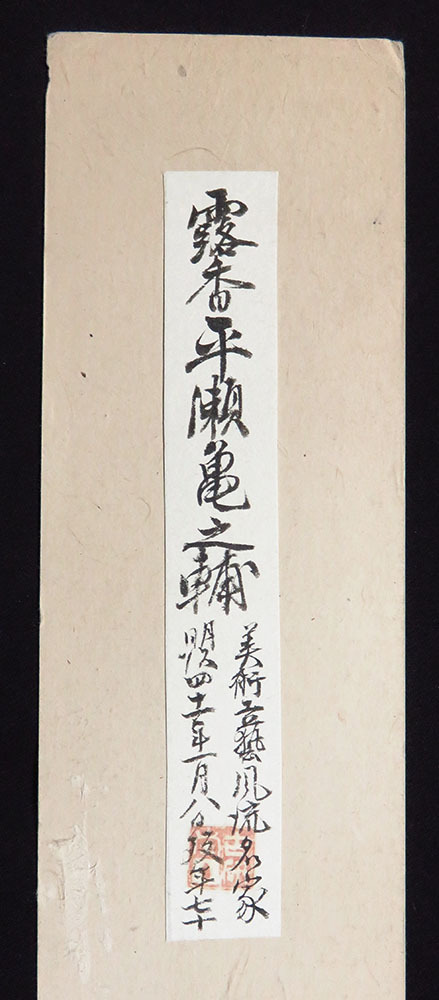 露香平瀬亀之輔
美術工藝風流名家
明治四十一年二月八日歿年七十